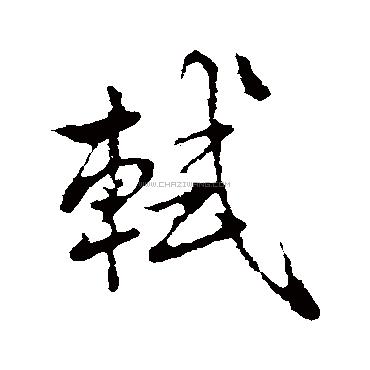 軾
WWW.CHAZIWANG.COM